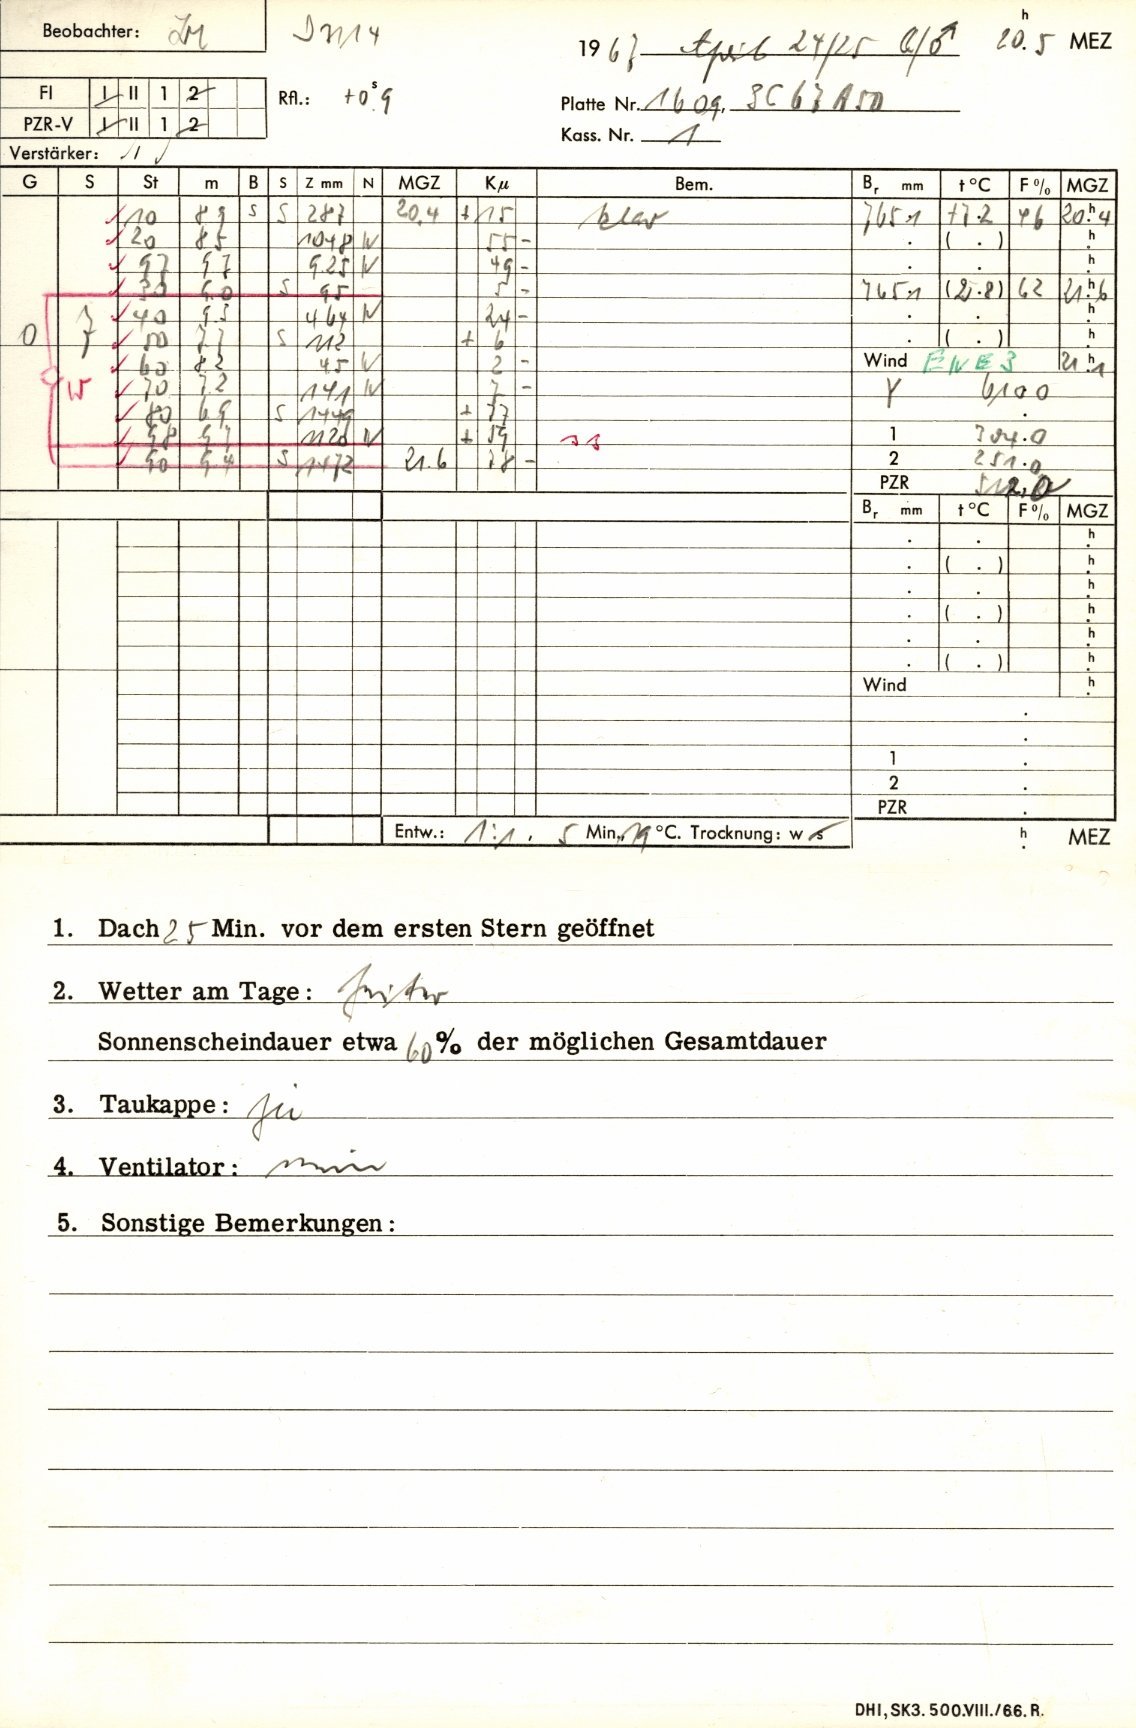 Beobachter:
1967 April 24/25 20.5 h MEZ
FI I II 1 2
Rfl.: +0.9 s
Platte Nr. 1609,
PZR-V I II 1 2
Kass. Nr. 1
Verstärker:
G S St m B S Z mm N MGZ Kµ Bem. Br mm t °C F % MGZ
10 89 S S 287 20.4 + 15 klar 765.1 +7.2 46 20.h4
20 85 1048 N 55 - . ( . ) h
97 97 925 N 49 - . . h
30 90 S 95 5 - 765.1 (2.8) 62 21.h6
40 93 464 N 24 - . . h
0 7 50 77 S 112 + 6 . ( . ) h
60 82 45 N 2 - Wind ENE 3 21.h1
W 70 72 141 N 7 - γ 6100
80 69 S 1449 + 77 .
98 97 1120 N + 59 1 304.0
90 94 S 1472 21.6 78 - 2 251.0
PZR 512.0
Br mm t °C F % MGZ
. . h
. ( . ) h
. . h
. ( . ) h
. . h
. ( . ) h
Wind h
.
.
1 .
2 .
PZR .
Entw.: 1:1, 5 Min., 19 °C. Trocknung: w s h MEZ
1. Dach 25 Min. vor dem ersten Stern geöffnet
2. Wetter am Tage: heiter
Sonnenscheindauer etwa 60 % der möglichen Gesamtdauer
3. Taukappe: ja
4. Ventilator: nein
5. Sonstige Bemerkungen:
DHI, SK3. 500.VIII./66. R.